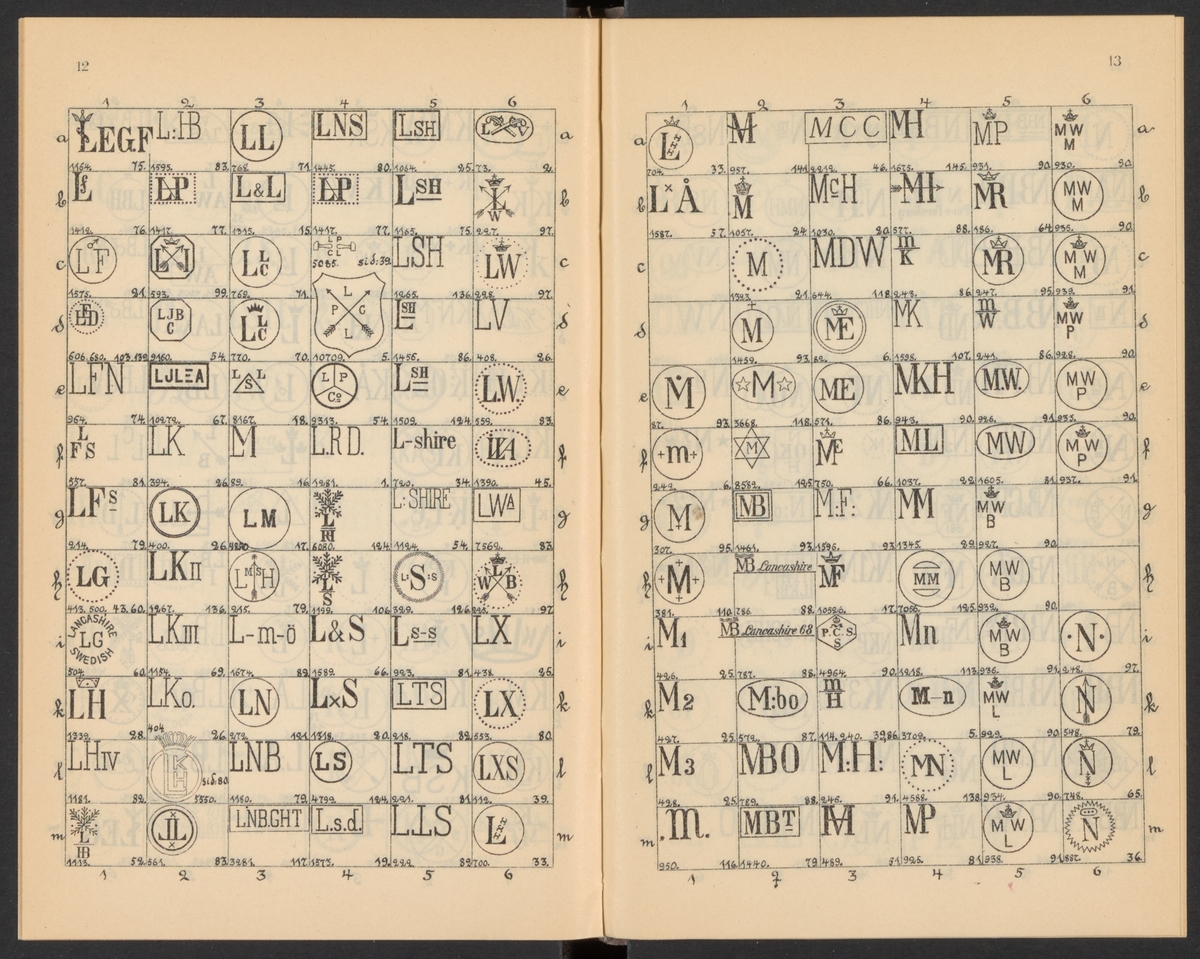 12
1 2 3 4 5 6
a LEGF L:HB LL LNS LSH L V a
1164. 75. 1595. 83. 768. 71. 1445. 80. 1064. 25. 73. 2.
b L LP L&L LP LSH L W b
1412. 76. 1417. 77. 1315. 15. 1417. 77. 1165. 75. 227. 97.
c LF LJ LLC LPCL LSH LW c
5085. sid:39.
1575. 21. 593. 99. 769. 71. 1265. 136. 228. 97.
d LJB C LLC L P C L LSH LV d
606, 680. 103. 139. 9160. 54. 770. 70. 10709. 5. 1456. 86. 408. 26.
e LFN LJLEA LSL LP Co LSH LW. e
964. 74. 10279. 67. 8167. 18. 9313. 54. 1509. 124. 559. 83.
f L FS LK M L.R.D. L-shire f
557. 81. 394. 26. 89. 16. 1281. 1. 720. 34. 1390. 45.
g LFs LK LM L L:SHIRE LWA g
214. 79. 400. 26. 17. 6080. 124. 1124. 54. 7569. 83.
h LG LKII LMSH L S L:S:S W B h
413. 500. 43. 60. 1267. 136. 215. 79. 1199. 106. 329. 126. 97.
i LANCASHIRE LG SWEDISH LKIII L-m-ö L&S Ls-s LX i
504. 60. 1154. 69. 1674. 89. 1589. 66. 923. 81. 438. 25.
k LH LKo. LN LxS LTS LX k
1339. 28. 404 26. 272. 121. 1318. 20. 218. 82. 553. 80.
l LHIV KLH LNB LS LTS LXS l
sid:80
1181. 82. 5350. 1180. 79. 4799. 124. 221. 81. 112. 39.
m L HB LL LNB.GHT L.s.d. LLS L m
1113. 52. 561. 83. 3281. 117. 1573. 19. 222. 82. 700. 33.
1 2 3 4 5 6
13
1 2 3 4 5 6
a L M MCC MH MP MW M a
704. 33. 957. 141. 2219. 46. 1675. 145. 931. 90. 930. 90.
b L×Å M McH MH MR MW M b
1587. 57. 1057. 24. 1030. 20. 577. 88. 186. 64. 935. 90.
c M MDW m K MR MW M c
1393. 21. 644. 118. 243. 86. 247. 95. 939. 91.
d M ME MK m W MW P d
1459. 93. 82. 6. 1598. 107. 241. 86. 928. 90.
e M M ME MKH MW. MW P e
87. 93. 3668. 118. 571. 86. 943. 90. 926. 91. 933. 90.
f +m+ M ME ML MW MW P f
242. 6. 8589. 125. 750. 66. 1037. 22. 1605. 81. 937. 91.
g M MB M:F: MM MW B g
307. 95. 1461. 93. 1596. 93. 1345. 29. 927. 90.
h +M+ MB Lancashire MF MM MW B h
381. 110. 786. 88. 10526. 17. 7056. 125. 932. 90.
i M1 MB Lancashire 68 P.C.S. S Mn MW B ·N· i
426. 25. 787. 88. 4564. 90. 1218. 113. 936. 91. 248. 97.
k M2 M:bo m H M-n MW L N k
427. 25. 572. 87. 114. 240. 39. 86. 3709. 5. 929. 90. 548. 79.
l M3 MBO M:H: MN MW L N l
428. 25. 789. 88. 246. 91. 4588. 138. 934. 90. 748. 65.
m .M. MBT MH MP MW L N m
950. 116. 1440. 79. 489. 51. 925. 81. 938. 91. 887. 36.
1 2 3 4 5 6